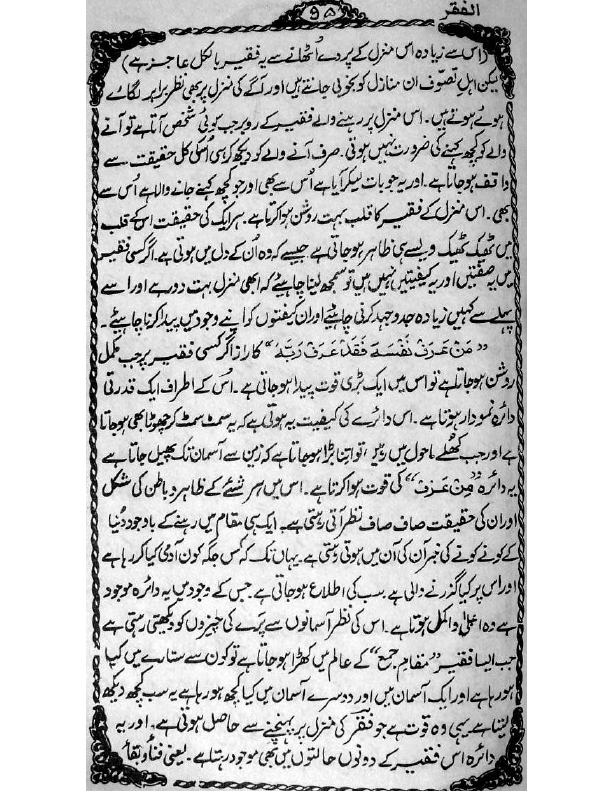 الفقر
۹۵
(اس سے زیادہ اس منزل کے پردے اُٹھانے سے یہ فقیر بالکل عاجز ہے)
لیکن اہلِ تصوّف ان منازل کو بخوبی جانتے ہیں اور آگے کی منزل پر بھی نظر برابر لگائے
ہوئے ہوتے ہیں۔ اس منزل پر رہنے والے فقیر کے روبرو جب کوئی شخص آتا ہے تو آنے
والے کو کچھ کہنے کی ضرورت نہیں ہوتی۔ صرف آنے والے کو دیکھ کر ہی اُسکی کل حقیقت سے
واقف ہو جاتا ہے۔ اور یہ جو بات لیکر آیا ہے اُس سے بھی اور جو کچھ کہنے جانے والا ہے اُس سے
بھی۔ اس منزل کے فقیر کا قلب بہت روشن ہوا کرتا ہے۔ ہر ایک کی حقیقت اس کے قلب
میں ٹھیک ٹھیک ویسے ہی ظاہر ہو جاتی ہے جیسے کہ وہ اُن کے دل میں ہوتی ہے۔ اگر کسی فقیر
میں یہ صفتیں اور یہ کیفیتیں نہیں ہیں تو سمجھ لینا چاہیئے کہ ابھی منزل بہت دور ہے اور اسے
پہلے سے کہیں زیادہ جدوجہد کرنی چاہیئے اور ان کیفتوں کو اپنے وجود میں پیدا کرنا چاہیئے۔
”مَنْ عَرَفَ نَفْسَهٗ فَقَدْ عَرَفَ رَبَّهٗ“ کا راز اگر کسی فقیر پر جب مکمل
روشن ہو جاتا ہے تو اس میں ایک بڑی قوت پیدا ہو جاتی ہے۔ اُس کے اطراف ایک قدرتی
دائرہ نمودار ہوتا ہے۔ اس دائرے کی کیفیت یہ ہوتی ہے کہ یہ سمٹ سمٹ کر چھوٹا بھی ہو جاتا
ہے اور جب کُھلے ماحول میں رہے، تو اتنا بڑا ہو جاتا ہے کہ زمین سے آسمان تک پھیل جاتا ہے
یہ دائرہ ”مَنْ عَرَفَ“ کی قوت ہوا کرتا ہے۔ اس میں ہر شئے کے ظاہر و باطن کی شکل
اور ان کی حقیقت صاف صاف نظر آتی رہتی ہے۔ ایک ہی مقام میں رہنے کے باوجود دُنیا
کے کونے کونے کی خبر آن کی آن میں ہوتی رہتی ہے۔ یہاں تک کہ کس جگہ کون آدمی کیا کر رہا ہے
اور اس پر کیا گذرنے والی ہے سب کی اطلاع ہو جاتی ہے۔ جس کے وجود میں یہ دائرہ موجود
ہے وہ اعلیٰ و اکمل ہوتا ہے۔ اس کی نظر آسمانوں سے پَرے کی چیزوں کو دیکھتی رہتی ہے
جب ایسا فقیر ”مقامِ جمع“ کے عالم میں کھڑا ہو جاتا ہے تو کون سے ستارے میں کیا
ہو رہا ہے اور ایک آسمان میں اور دوسرے آسمان میں کیا کچھ ہو رہا ہے یہ سب کچھ دیکھ
لیتا ہے۔ یہی وہ قوت ہے جو فقر کی منزل پر پہنچنے سے حاصل ہوتی ہے۔ اور یہ
دائرہ اس فقیر کے دونوں حالتوں میں بھی موجود رہتا ہے۔ یعنی فنا و بقا